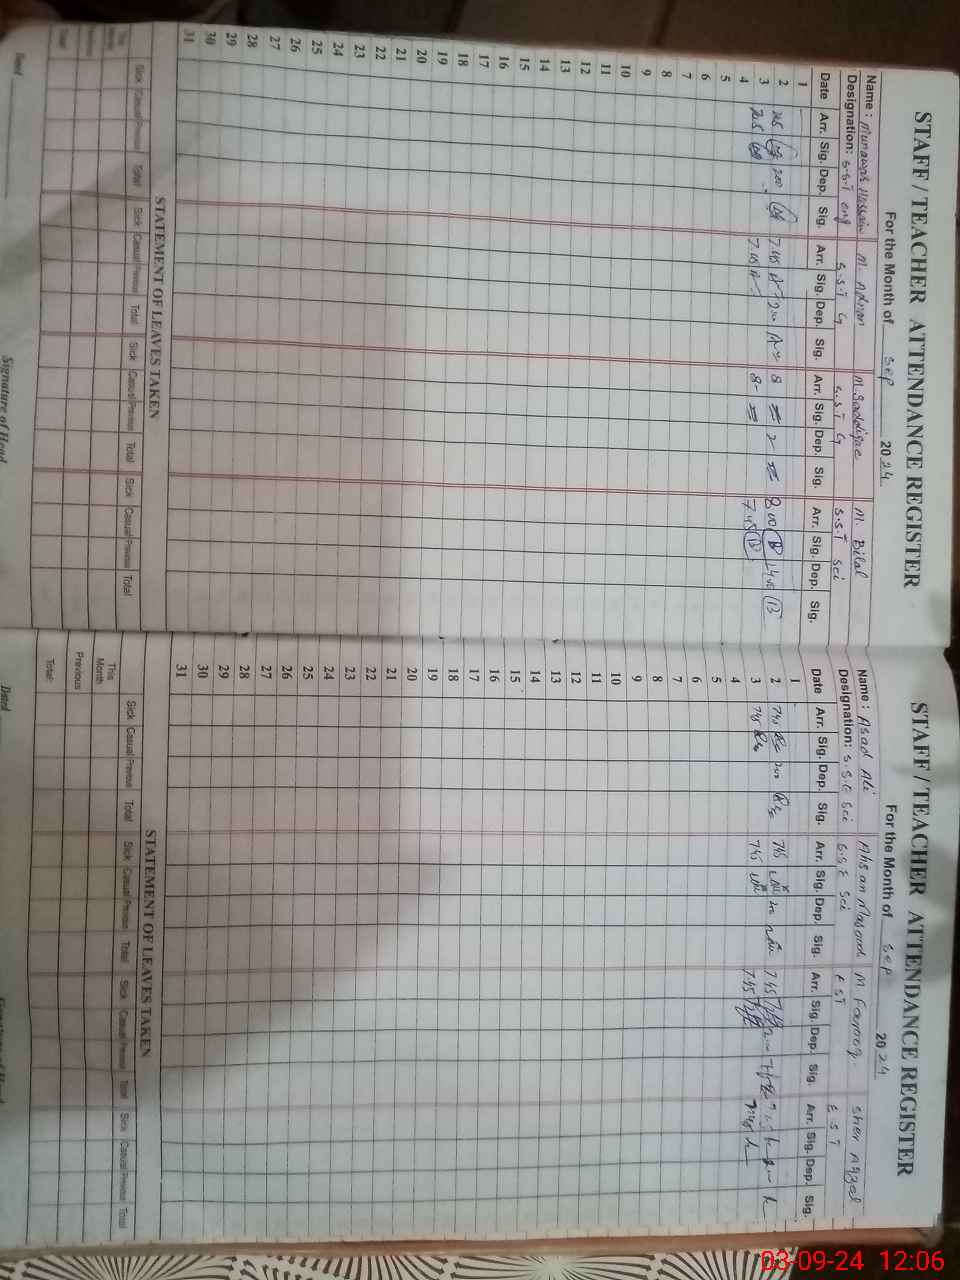 STAFF / TEACHER ATTENDANCE REGISTER
For the Month of Sep 2024
Name: Munawar Hussain M. Adnan M. Saddique M. Bilal
Designation: S.S.T eng S.S.T G S.S.T G S.S.T Sci
Date Arr. Sig. Dep. Sig. Arr. Sig. Dep. Sig. Arr. Sig. Dep. Sig. Arr. Sig. Dep. Sig.
1
2 7.45 2.00 8 2 8.00 B 14.00 B
3 7.45 8 7.45 B
4
5
6
7
8
9
10
11
12
13
14
15
16
17
18
19
20
21
22
23
24
25
26
27
28
29
30
31
STATEMENT OF LEAVES TAKEN
Sick Casual Previous Total Sick Casual Previous Total Sick Casual Previous Total Sick Casual Previous Total
This Month
Previous
Total:
Dated Signature of Head
STAFF / TEACHER ATTENDANCE REGISTER
For the Month of Sep 2024
Name: Asad Ali Ahsan Masood M Farooq. Sher Afzal
Designation: S.S.E Sci S.S.E Sci EST EST
Date Arr. Sig. Dep. Sig. Arr. Sig. Dep. Sig. Arr. Sig. Dep. Sig. Arr. Sig. Dep. Sig.
1
2 745 200 745 7.45
3 745 745 7.45 7:45
4
5
6
7
8
9
10
11
12
13
14
15
16
17
18
19
20
21
22
23
24
25
26
27
28
29
30
31
STATEMENT OF LEAVES TAKEN
Sick Casual Previous Total Sick Casual Previous Total Sick Casual Previous Total Sick Casual Previous Total
This Month
Previous
Total:
Dated
03-09-24 12:06